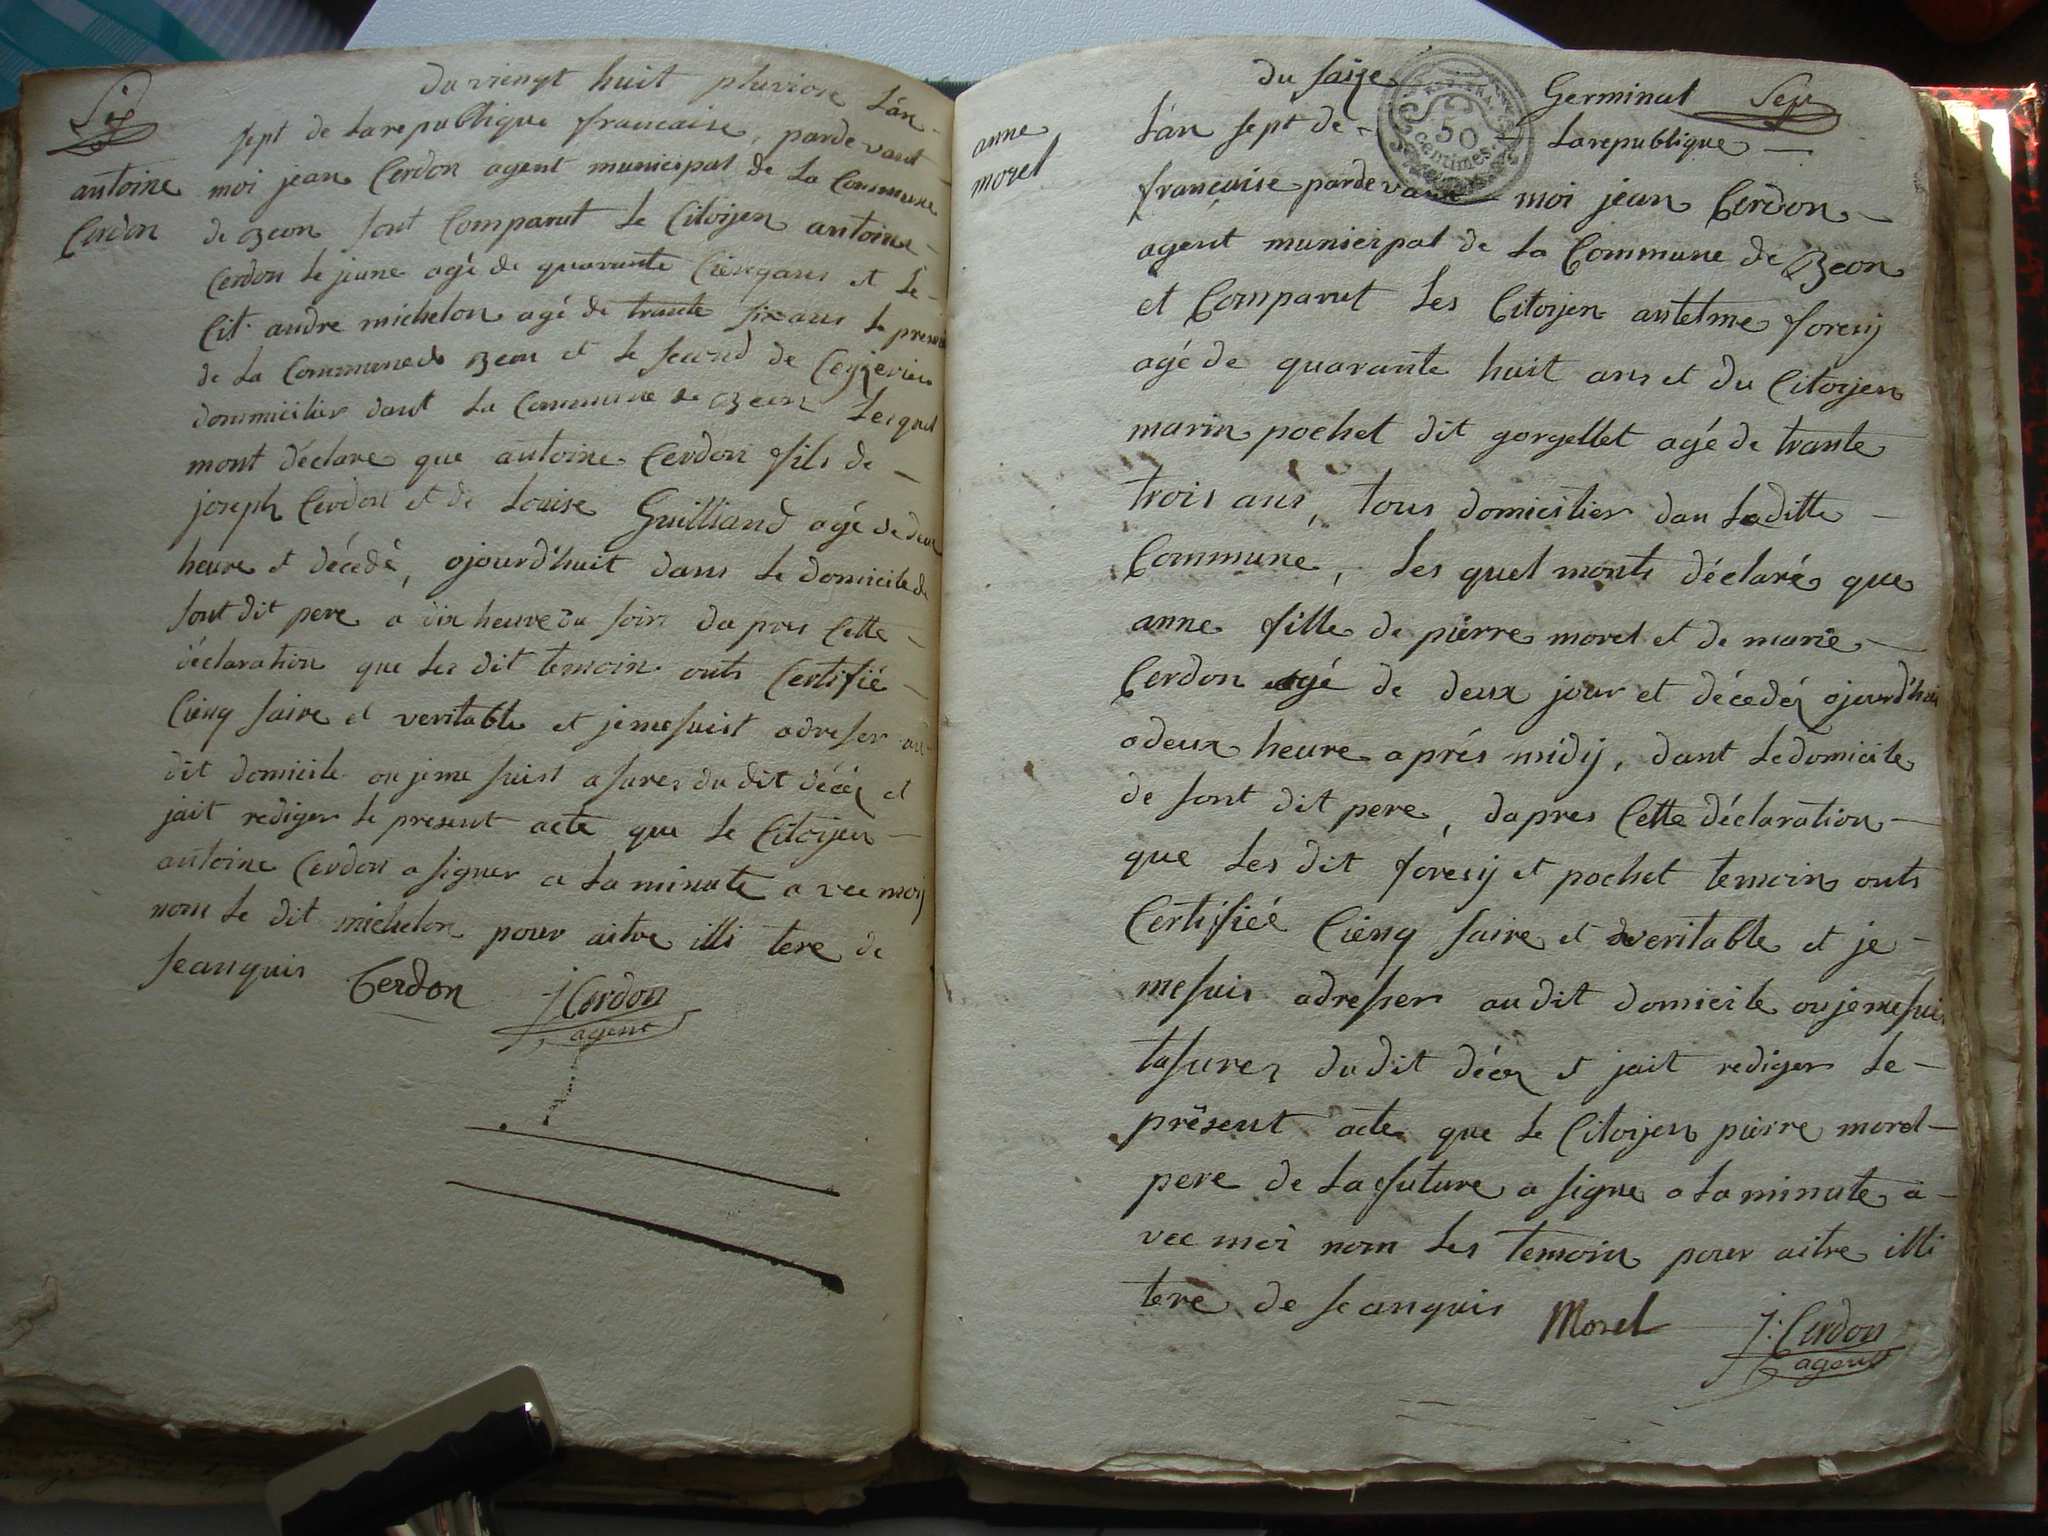 Six
antoine
Cerdon
du viengt huit pluviose L'an
sept de La republique francaise, pardevant
moi jean Cerdon agent municipal de La Commune
de Beon sont Comparut Le Citoijen antoine
Cerdon le jeune agé de quarante Cienq ans et Le
Cit. andre michelon agé de trante six ans Le premier
de La Commune de Beon et le second de Ceyzerieu
dommicilier dant La Commune de Beon Lesquel
mont déclare que antoine Cerdon fils de
joseph Cerdon et de Louise Guilliand agé de deux
heure et décedé, ojourd'huit dans Le domicile de
sont dit pere a dix heure du soir da pres Cette
déclaration que Les dit temoin onts Certifié
Cienq saire et veritable et je me suist adreser au
dit domicile ou je me suist asurer du dit décéz et
jait rediger Le present acte que Le Citoijen
antoine Cerdon a signer a La minute a vec moij
nom Le dit michelon pour aitre illi tere de
seanquis Cerdon j Cerdon
agent
anne
morel
du saize Germinal Sept
L'an sept de La republique
française pardevant moi jean Cerdon
agent municipal de La Commune de Beon
et Comparut Les Citoijen antelme foresij
agé de quarante huit ans et du Citoijen
marin pochet dit gorgellet agé de trante
trois ans, tous domicilier dan La ditte
Commune, Les quel monts déclaré que
anne fille de pierre morel et de marie
Cerdon agé de deux jour et décedéz ojourd'hui
a deux heure aprés midij, dant Le domicile
de sont dit pere, dapres Cette déclaration
que Les dit foresij et pochet temoin onts
Certifiéé Cienq saire et veritable et je
me suis adreser au dit domicile ou je me suis
tasurez du dit décéz et jait rediger Le
présent acte que Le Citoijen pierre morel
pere de La future a signe a La minute a
vec moi nom Les temoin pour aitre illi
tere de seanquis Morel j: Cerdon
agent
50
Centimes.